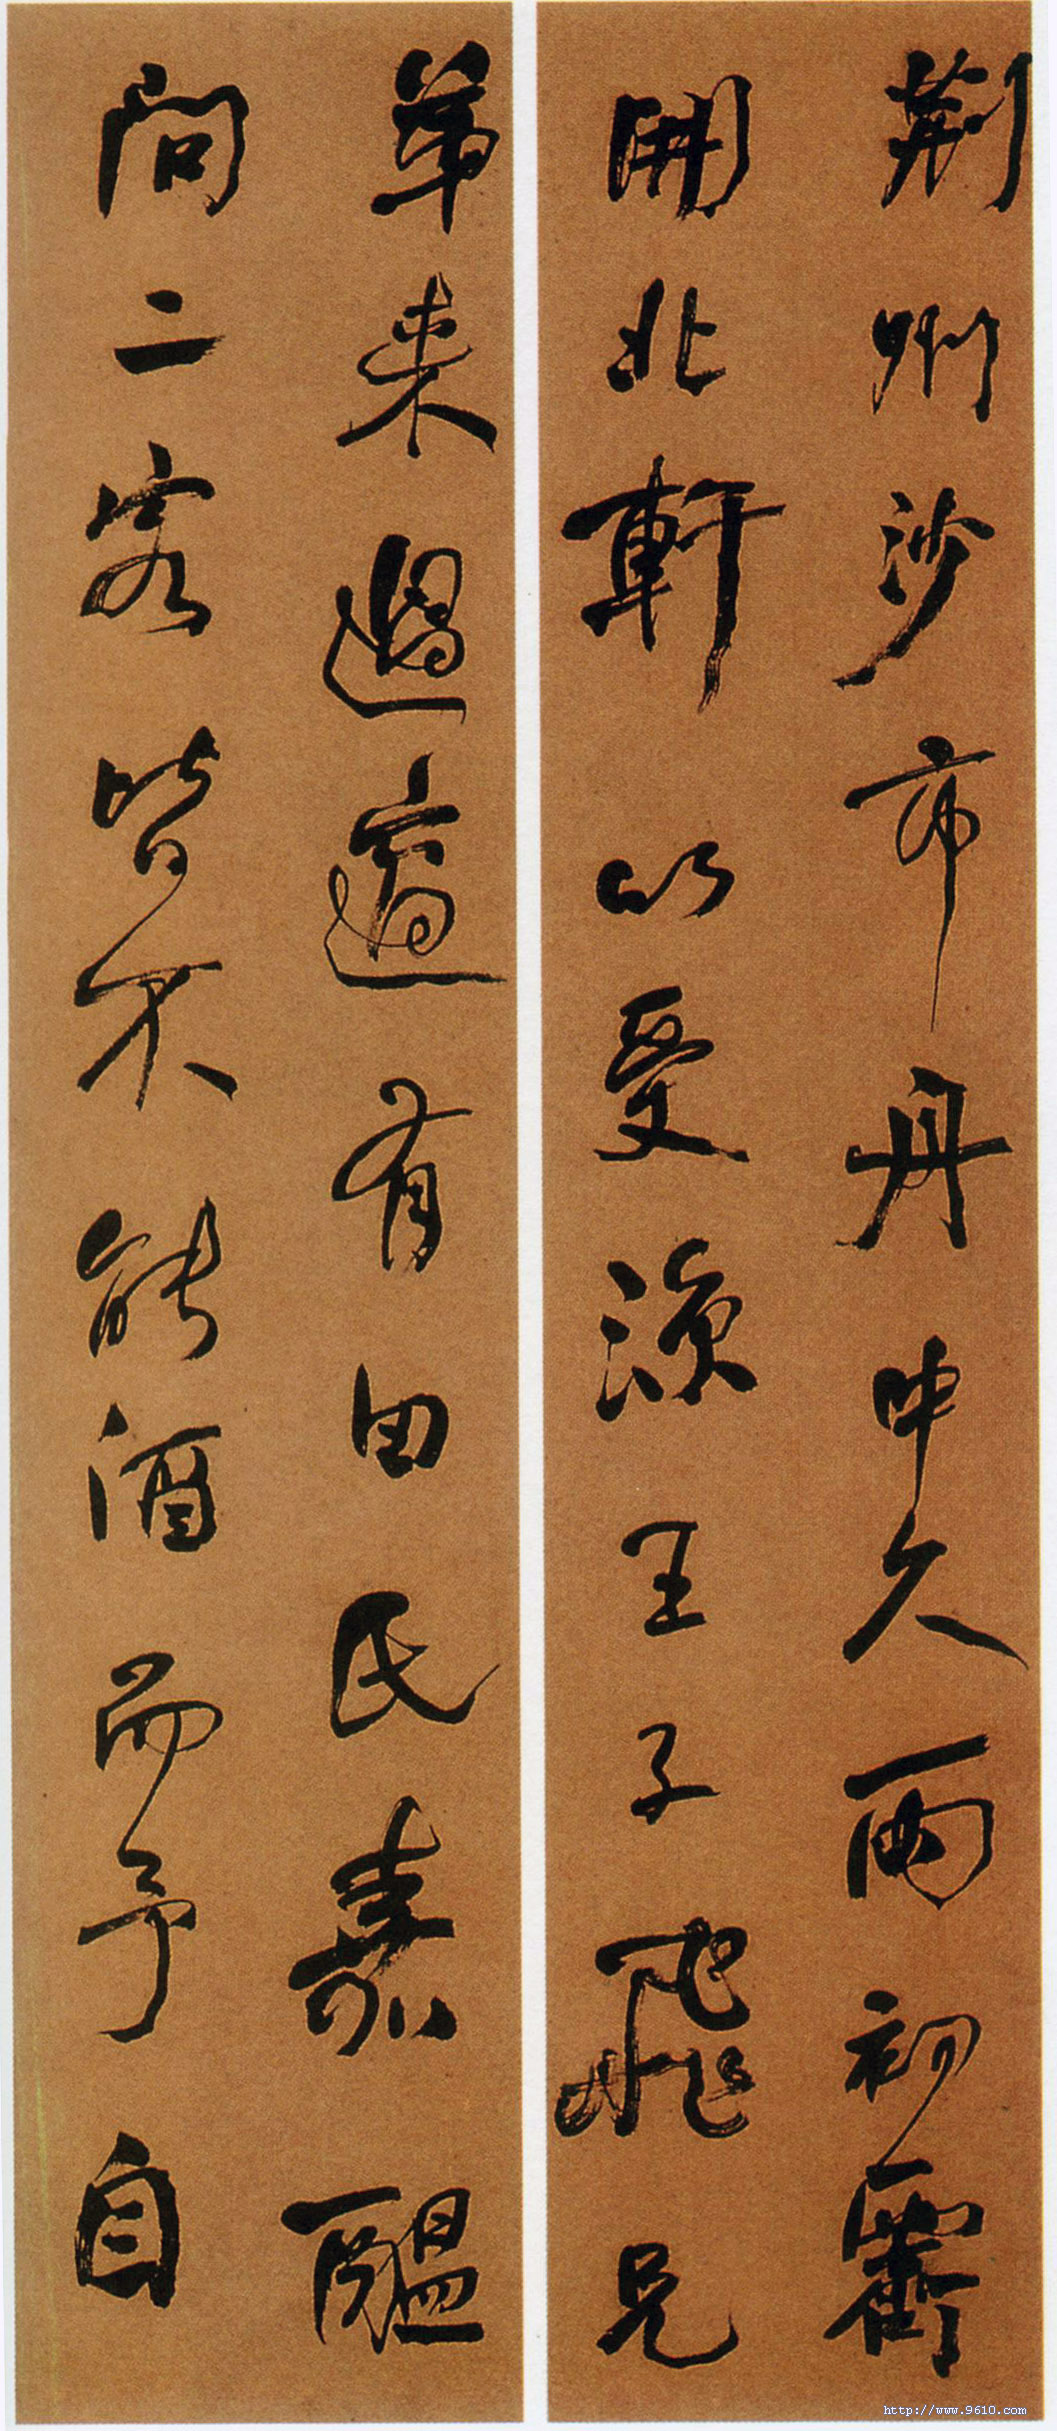 荆州沙市舟中久雨初霽
開北軒以受涼王子飛兄
弟來過適有田氏嘉醖
問二客皆不能酒而予自
http://www.9610.com